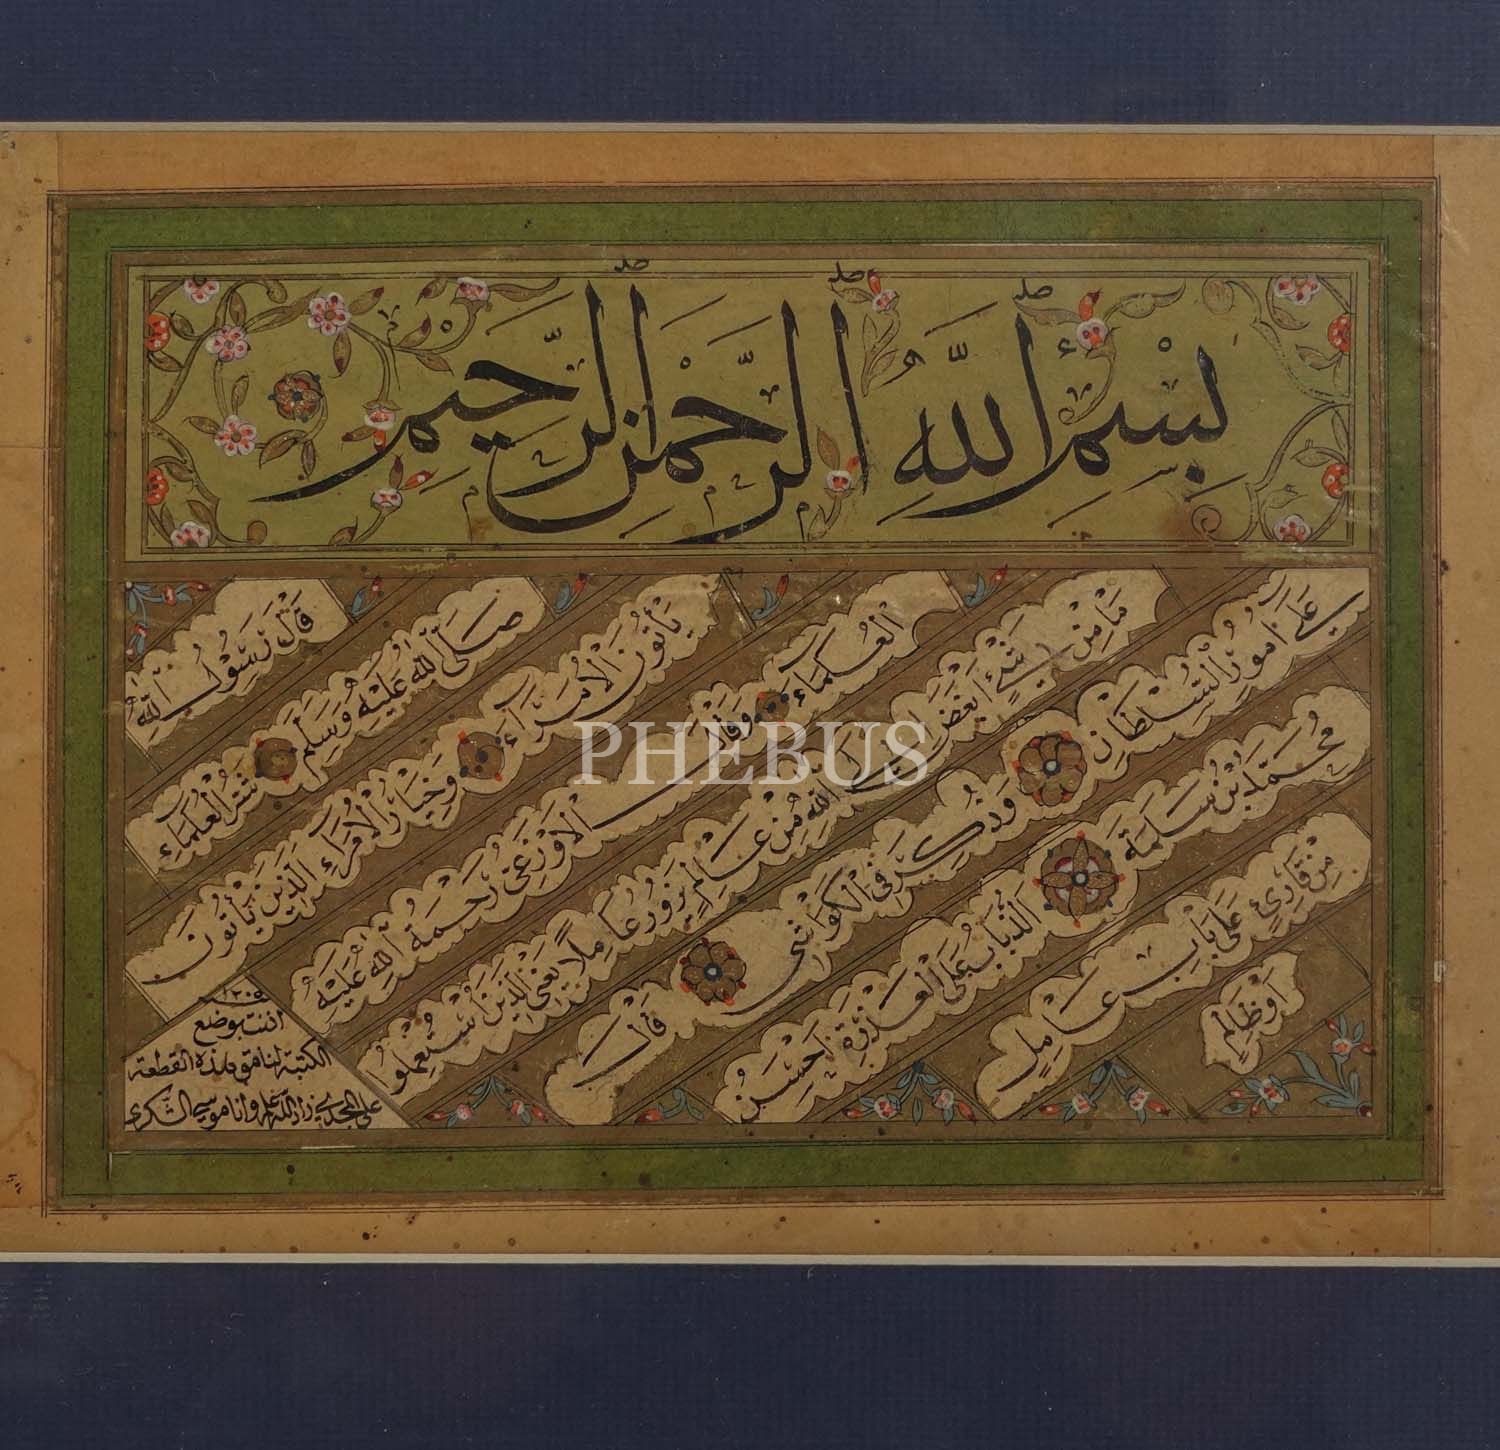 بِسْمِ اللَّهِ الرَّحْمٰنِ الرَّحِيمِ
قَالَ رَسُولُ اللهِ
صَلَّى اللهُ عَلَيْهِ وَسَلَّمَ شَرُّ الْعُلَمَاءِ
الَّذِينَ يَأْتُونَ الْأُمَرَآءَ وَخِيَارُ الْأُمَرَآءِ الَّذِينَ يَأْتُونَ
الْعُلَمَاءَ وَقَالَ الْأَوْزَعِيُّ رَحْمَةُ اللهِ عَلَيْهِ
مَا مِنْ شَيْءٍ أَبْغَضَ إِلَى اللهِ مِنْ عَالِمٍ يَزُورُ عَامِلًا يَعْنِي الَّذِينَ اسْتُعْمِلُوا
عَلَى أُمُورِ السُّلْطَانِ وَذُكِرَ فِي الْكَوَاشِي قَالَ
مُحَمَّدُ بْنُ سَلَمَةَ الذُّبَابُ عَلَى الْعَذَرَةِ أَحْسَنُ
مِنْ قَارِئٍ عَلَى بَابِ عَامِلٍ
أَوْ ظَالِمٍ
١٢٠٥
اذنت بوضع
الكتبة لنامق هذه القطعة
وانا موسى الشكرى
PHEBUS